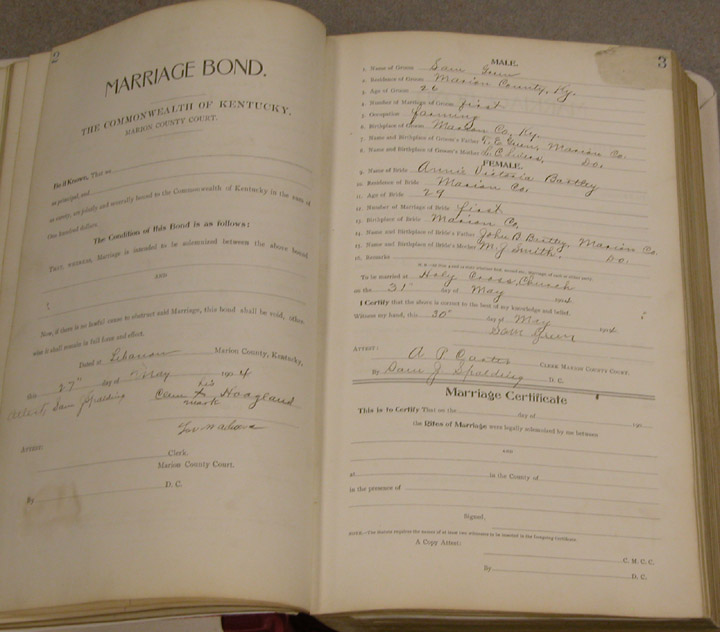 2
MARRIAGE BOND.
THE COMMONWEALTH OF KENTUCKY,
MARION COUNTY COURT.
Be it Known, That we
as principal, and
as surety, are jointly and severally bound to the Commonwealth of Kentucky in the sum of
One hundred dollars.
The Condition of this Bond is as follows:
That, whereas, Marriage is intended to be solemnized between the above bound
AND
Now, if there is no lawful cause to obstruct said Marriage, this bond shall be void, other-
wise it shall remain in full force and effect.
Dated at Lebanon Marion County, Kentucky,
this 27" day of May 1904
his
Attest, Sam J Spalding Clem X Hoagland
mark
Attest:
Clerk
Marion County Court.
By D. C.
3
MALE.
1. Name of Groom Sam Green
2. Residence of Groom Marion County, Ky.
3. Age of Groom 26
4. Number of Marriage of Groom first
5. Occupation farming
6. Birthplace of Groom Marion Co. Ky.
7. Name and Birthplace of Groom's Father T. E. Green, Marion Co.
8. Name and Birthplace of Groom's Mother Do.
FEMALE.
9. Name of Bride Annie Victoria Bartley
10. Residence of Bride Marion Co.
11. Age of Bride 29
12. Number of Marriage of Bride first
13. Birthplace of Bride Marion Co.
14. Name and Birthplace of Bride's Father John B Bartley, Marion Co.
15. Name and Birthplace of Bride's Mother M. J Smith Do.
16. Remarks
To be married at Holy Cross, Church
on the 31" day of May 1904
I Certify that the above is correct to the best of my knowledge and belief.
Witness my hand, this 30" day of May 1904
Sam Green
Attest:
A. P. CLERK MARION COUNTY COURT.
By Sam J Spalding D. C.
Marriage Certificate
This is to Certify That on the day of 190
the Rites of Marriage were legally solemnized by me between
AND
at in the County of
in the presence of
Signed,
A Copy Attest:
C. M. C. C.
By D. C.